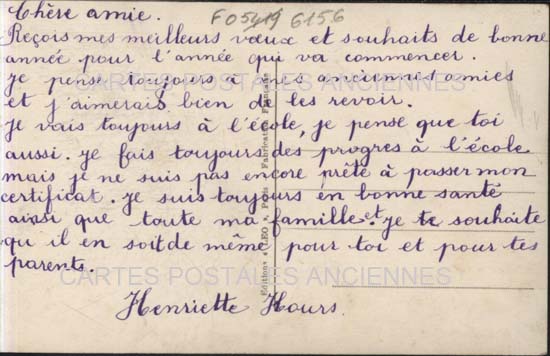 Chère amie.
F05419 6156
Reçois mes meilleurs vœux et souhaits de bonne
année pour l'année qui va commencer.
je pense toujours à mes anciennes amies
CARTES POSTALES ANCIENNES
et j'aimerais bien de les revoir.
je vais toujours à l'école, je pense que toi
aussi. je fais toujours des progres à l'école.
mais je ne suis pas encore prête à passer mon
certificat. je suis toujours en bonne santé
ainsi que toute ma famille. et je te souhaite
qu il en soit de même pour toi et pour tes
parents.
CARTES POSTALES ANCIENNES
Henriette Hours.
Editions
Paris
Fabrication Française